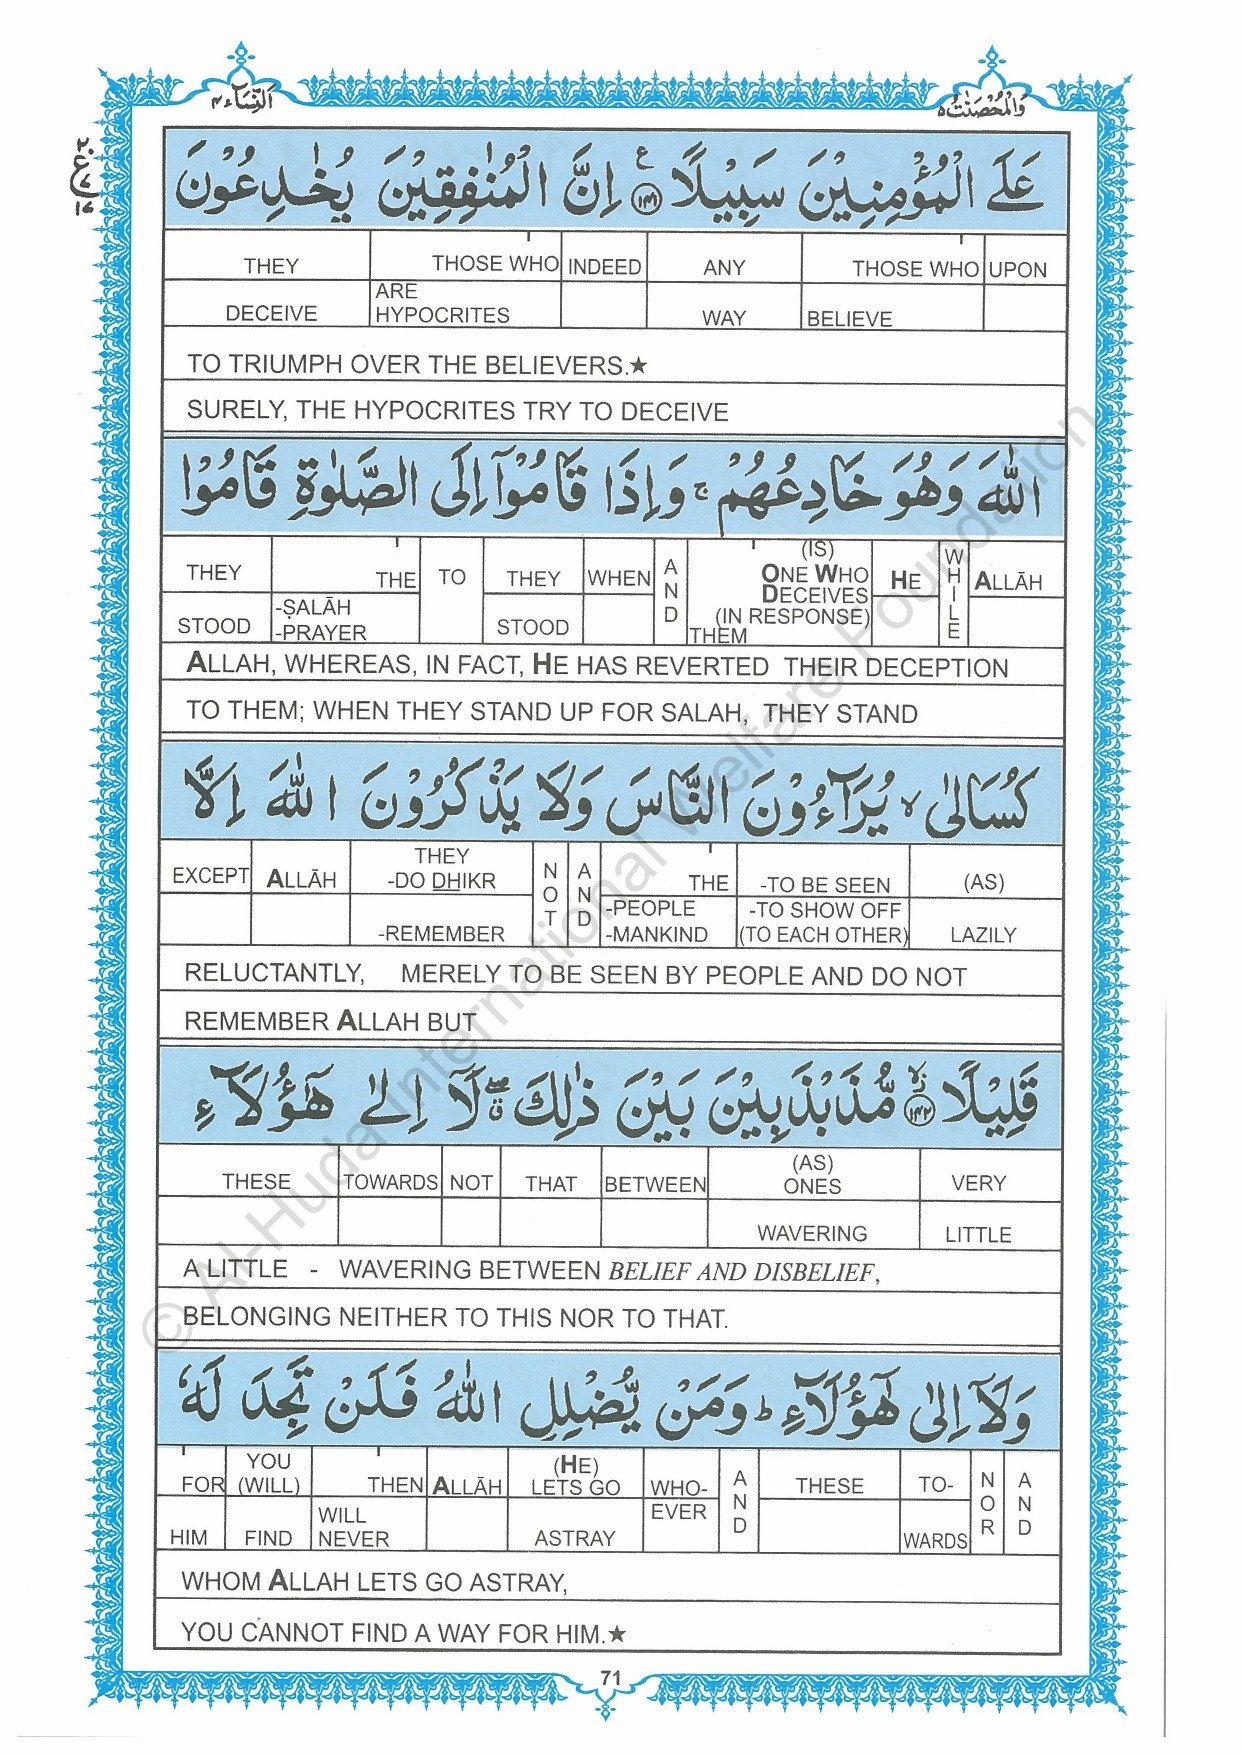 النِّسَآء ٤
وَالْمُحْصَنٰتُ ٥
عَلَى الْمُؤْمِنِيْنَ سَبِيْلًا ﴿١٤١﴾ ع اِنَّ الْمُنٰفِقِيْنَ يُخٰدِعُوْنَ
THEY THOSE WHO INDEED ANY THOSE WHO UPON
DECEIVE ARE HYPOCRITES WAY BELIEVE
TO TRIUMPH OVER THE BELIEVERS.★
SURELY, THE HYPOCRITES TRY TO DECEIVE
اللّٰهَ وَهُوَ خَادِعُهُمْ ۚ وَاِذَا قَامُوْٓا اِلَى الصَّلٰوةِ قَامُوْا
THEY THE TO THEY WHEN AND (IS) ONE WHO DECEIVES HE WHILE ALLĀH
STOOD -ṢALĀH -PRAYER STOOD (IN RESPONSE) THEM
ALLAH, WHEREAS, IN FACT, HE HAS REVERTED THEIR DECEPTION
TO THEM; WHEN THEY STAND UP FOR SALAH, THEY STAND
كُسَالٰى ۙ يُرَآءُوْنَ النَّاسَ وَلَا يَذْكُرُوْنَ اللّٰهَ اِلَّا
EXCEPT ALLĀH THEY -DO DHIKR NOT AND THE -TO BE SEEN (AS)
-REMEMBER -PEOPLE -MANKIND -TO SHOW OFF (TO EACH OTHER) LAZILY
RELUCTANTLY, MERELY TO BE SEEN BY PEOPLE AND DO NOT
REMEMBER ALLAH BUT
قَلِيْلًا ﴿١٤٢﴾ مُّذَبْذَبِيْنَ بَيْنَ ذٰلِكَ ۖ لَآ اِلٰى هٰٓؤُلَآءِ
THESE TOWARDS NOT THAT BETWEEN (AS) ONES VERY
WAVERING LITTLE
A LITTLE - WAVERING BETWEEN BELIEF AND DISBELIEF,
BELONGING NEITHER TO THIS NOR TO THAT.
وَلَآ اِلٰى هٰٓؤُلَآءِ ؕ وَمَنْ يُّضْلِلِ اللّٰهُ فَلَنْ تَجِدَ لَهٗ
FOR YOU (WILL) THEN ALLĀH (HE) LETS GO WHO- AND THESE TO- NOR AND
HIM FIND WILL NEVER ASTRAY EVER WARDS
WHOM ALLAH LETS GO ASTRAY,
YOU CANNOT FIND A WAY FOR HIM.★
71
© Al-Huda International Welfare Foundation